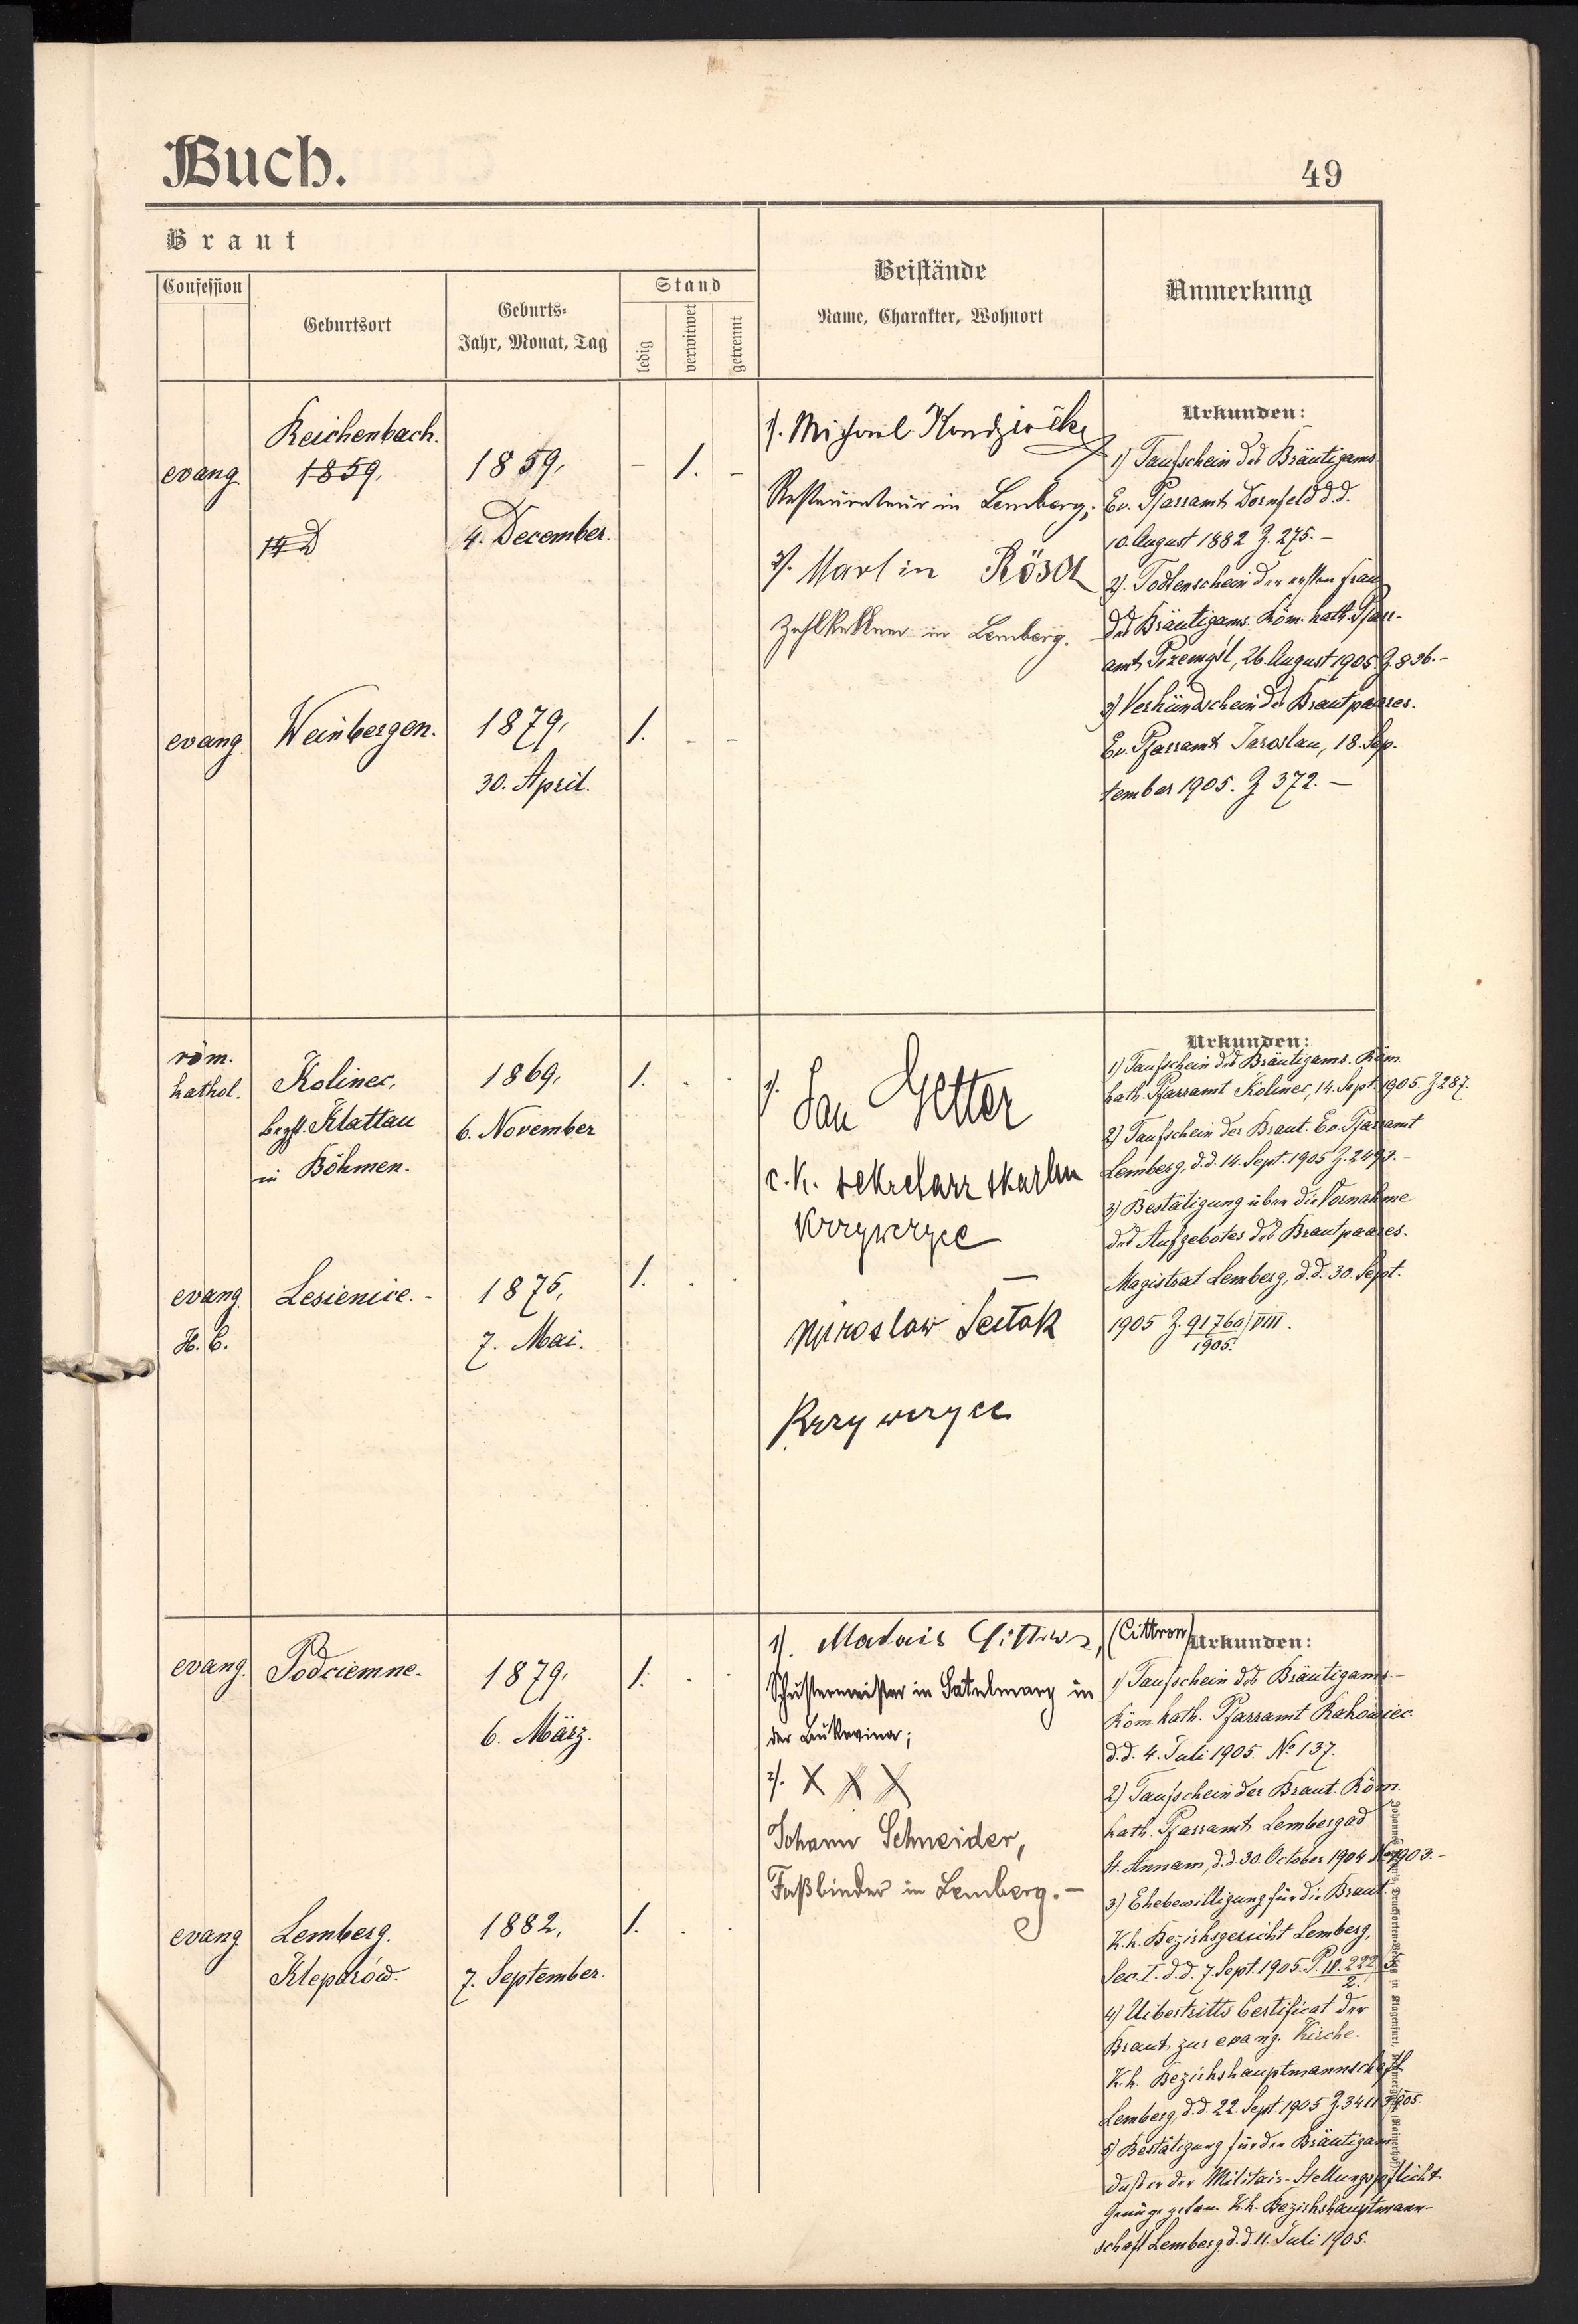 Buch.
49
Braut
Confession
Geburtsort
Geburts-
Jahr, Monat, Tag
Stand
ledig
verwitwet
getrennt
Beistände
Name, Charakter, Wohnort
Anmerkung
evang
Reichenbach.
1859,
14 D
1859,
4. December.
-
1.
-
1). Michael
Restaurateur in Lemberg;
2). Martin Rösch
Zahlkellner in Lemberg.
Urkunden:
1) Taufschein des Bräutigams
Ev. Pfarramt Dornfeld d.d.
10. August 1882 Z. 275.-
2). Todtenschein der ersten Frau
des Bräutigams. Röm. kath. Pfarr-
amt Przemyśl, 26. August 1905 Z. 836.-
3) Verkündschein des Brautpaares.
Ev. Pfarramt Jaroslau, 18. Sep-
tember 1905. Z 372.-
evang
Weinbergen.
1879,
30. April.
1.
-
-
röm.
kathol.
Kolinec,
bezk. Klattau
in Böhmen.
1869,
6. November
1.
1). Jan Getter
c.k. sekretarz skarbu
Krzywczyce
Miroslaw Šesták
Krzywczyce
Urkunden:
1) Taufschein des Bräutigams. Röm.
kath. Pfarramt Kolinec, 14. Sept. 1905. Z. 287.
2) Taufschein der Braut. Ev. Pfarramt
Lemberg, d.d. 14. Sept. 1905 Z. 2493.-
3) Bestätigung über die Vornahme
des Aufgebotes des Brautpaares.
Magistrat Lemberg, d.d. 30. Sept.
1905 Z. 91760/VIII.
1905.
evang.
H. C.
Lesienice.-
1875,
7. Mai.
1.
evang.
Podciemne.
1879,
6. März.
1.
1). (Cittron)
Schustermeister in Satulmary in
der Bukovina;
2). X X X
Johann Schneider,
Faßbinder in Lemberg.-
Urkunden:
1) Taufschein des Bräutigams.-
Röm. kath. Pfarramt Rakowiec
d.d. 4. Juli 1905. No 137.
2) Taufschein der Braut. Röm.
kath. Pfarramt Lemberg ad
St. Annam, d.d. 30. October 1904
3) Ehebewilligung für die Braut.
K.k. Bezirksgericht Lemberg,
Sec. I. d.d. 7. Sept. 1905.
4) Uibertritts Certificat der
Braut zur evang. Kirche.
K.k. Bezirkshauptmannschaft
Lemberg, d.d. 22. Sept. 1905
5) Bestätigung für den Bräutigam
daß er der Militair-Stellungspflicht
Genüge getan. K.k. Bezirkshauptmann-
schaft Lemberg d.d. 11. Juli 1905.
evang
Lemberg.
Kleparów.
1882,
7. September.
1.